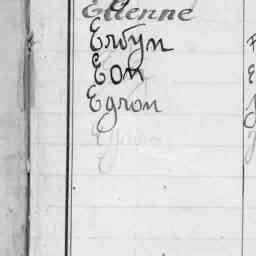 Etienne
Erwyn
Eon
Egron